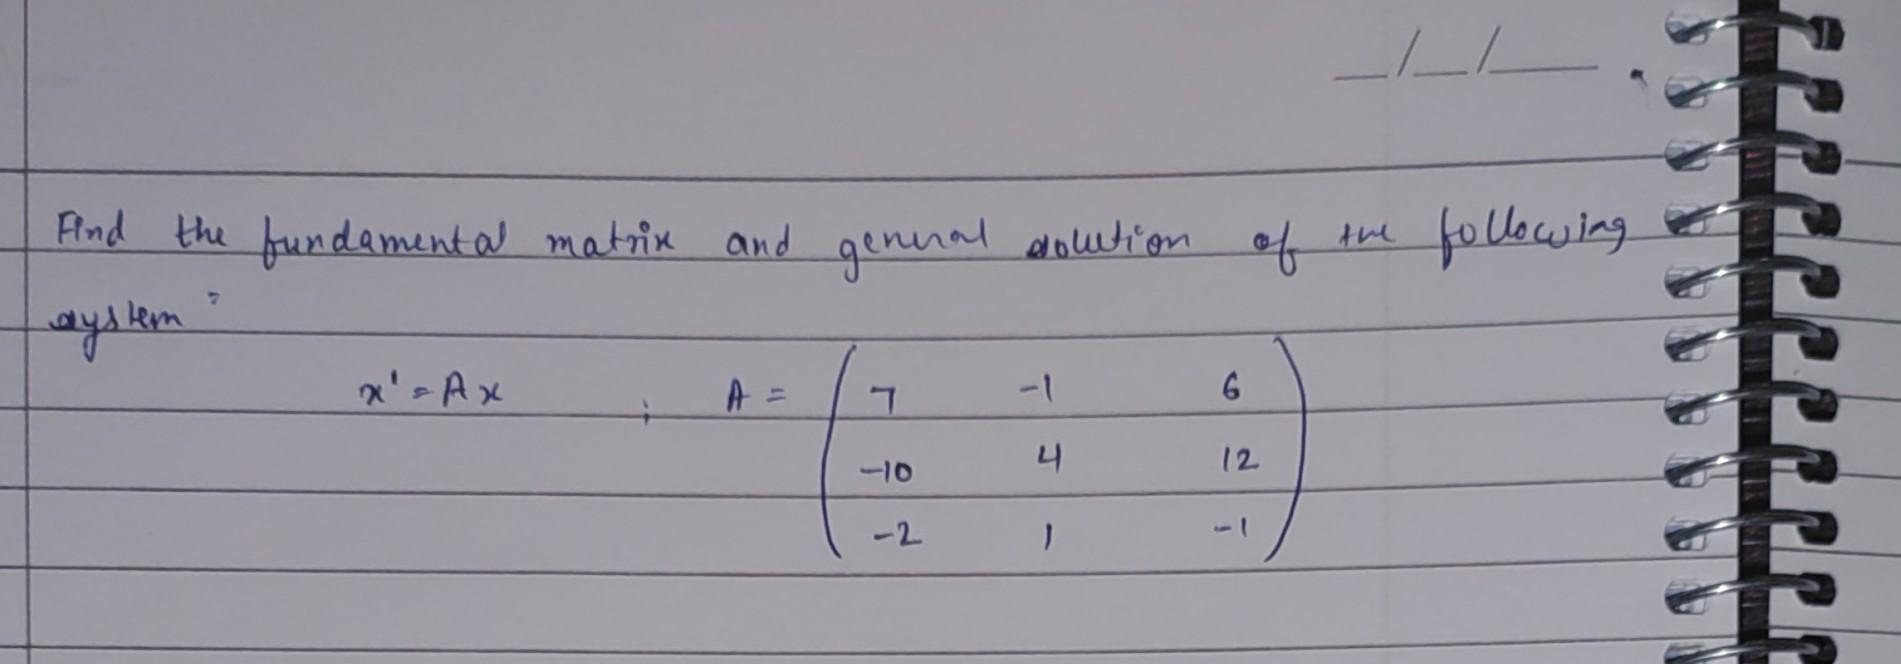 __/__/____ .
Find the fundamental matrix and general solution of the following
system:
x' = Ax ; A = ( 7 -1 6
-10 4 12
-2 1 -1 )